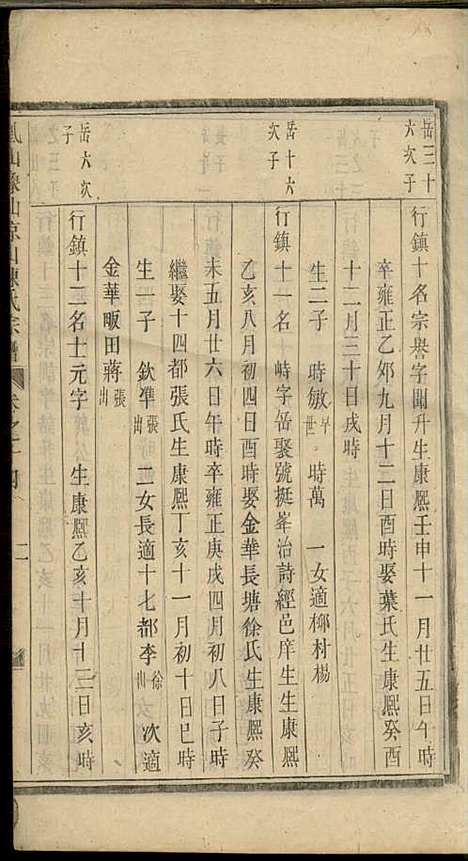 岳三十
六次子
行鎮十名宗譽字聞升生康熙壬申十一月廿五日午時
卒雍正乙卯九月十二日酉時娶葉氏生康熙癸酉
十二月三十日戌時
生二子 時敏早世 時萬 一女適柳村楊
岳十六
次子
行鎮十一名 峙字岳聚號挺峯治詩經邑庠生生康熙
乙亥八月初四日酉時娶金華長塘徐氏生康熙癸
未五月廿六日午時卒雍正庚戌四月初八日子時
繼娶十四都張氏生康熙丁亥十一月初十日巳時
生一子 欽準張出 二女長適十七都李徐出 次適
金華畈田蔣張出
岳六次
子
行鎮十二名士元字 生康熙乙亥十月十三日亥時
山象山京山陳氏宗譜 卷之 二